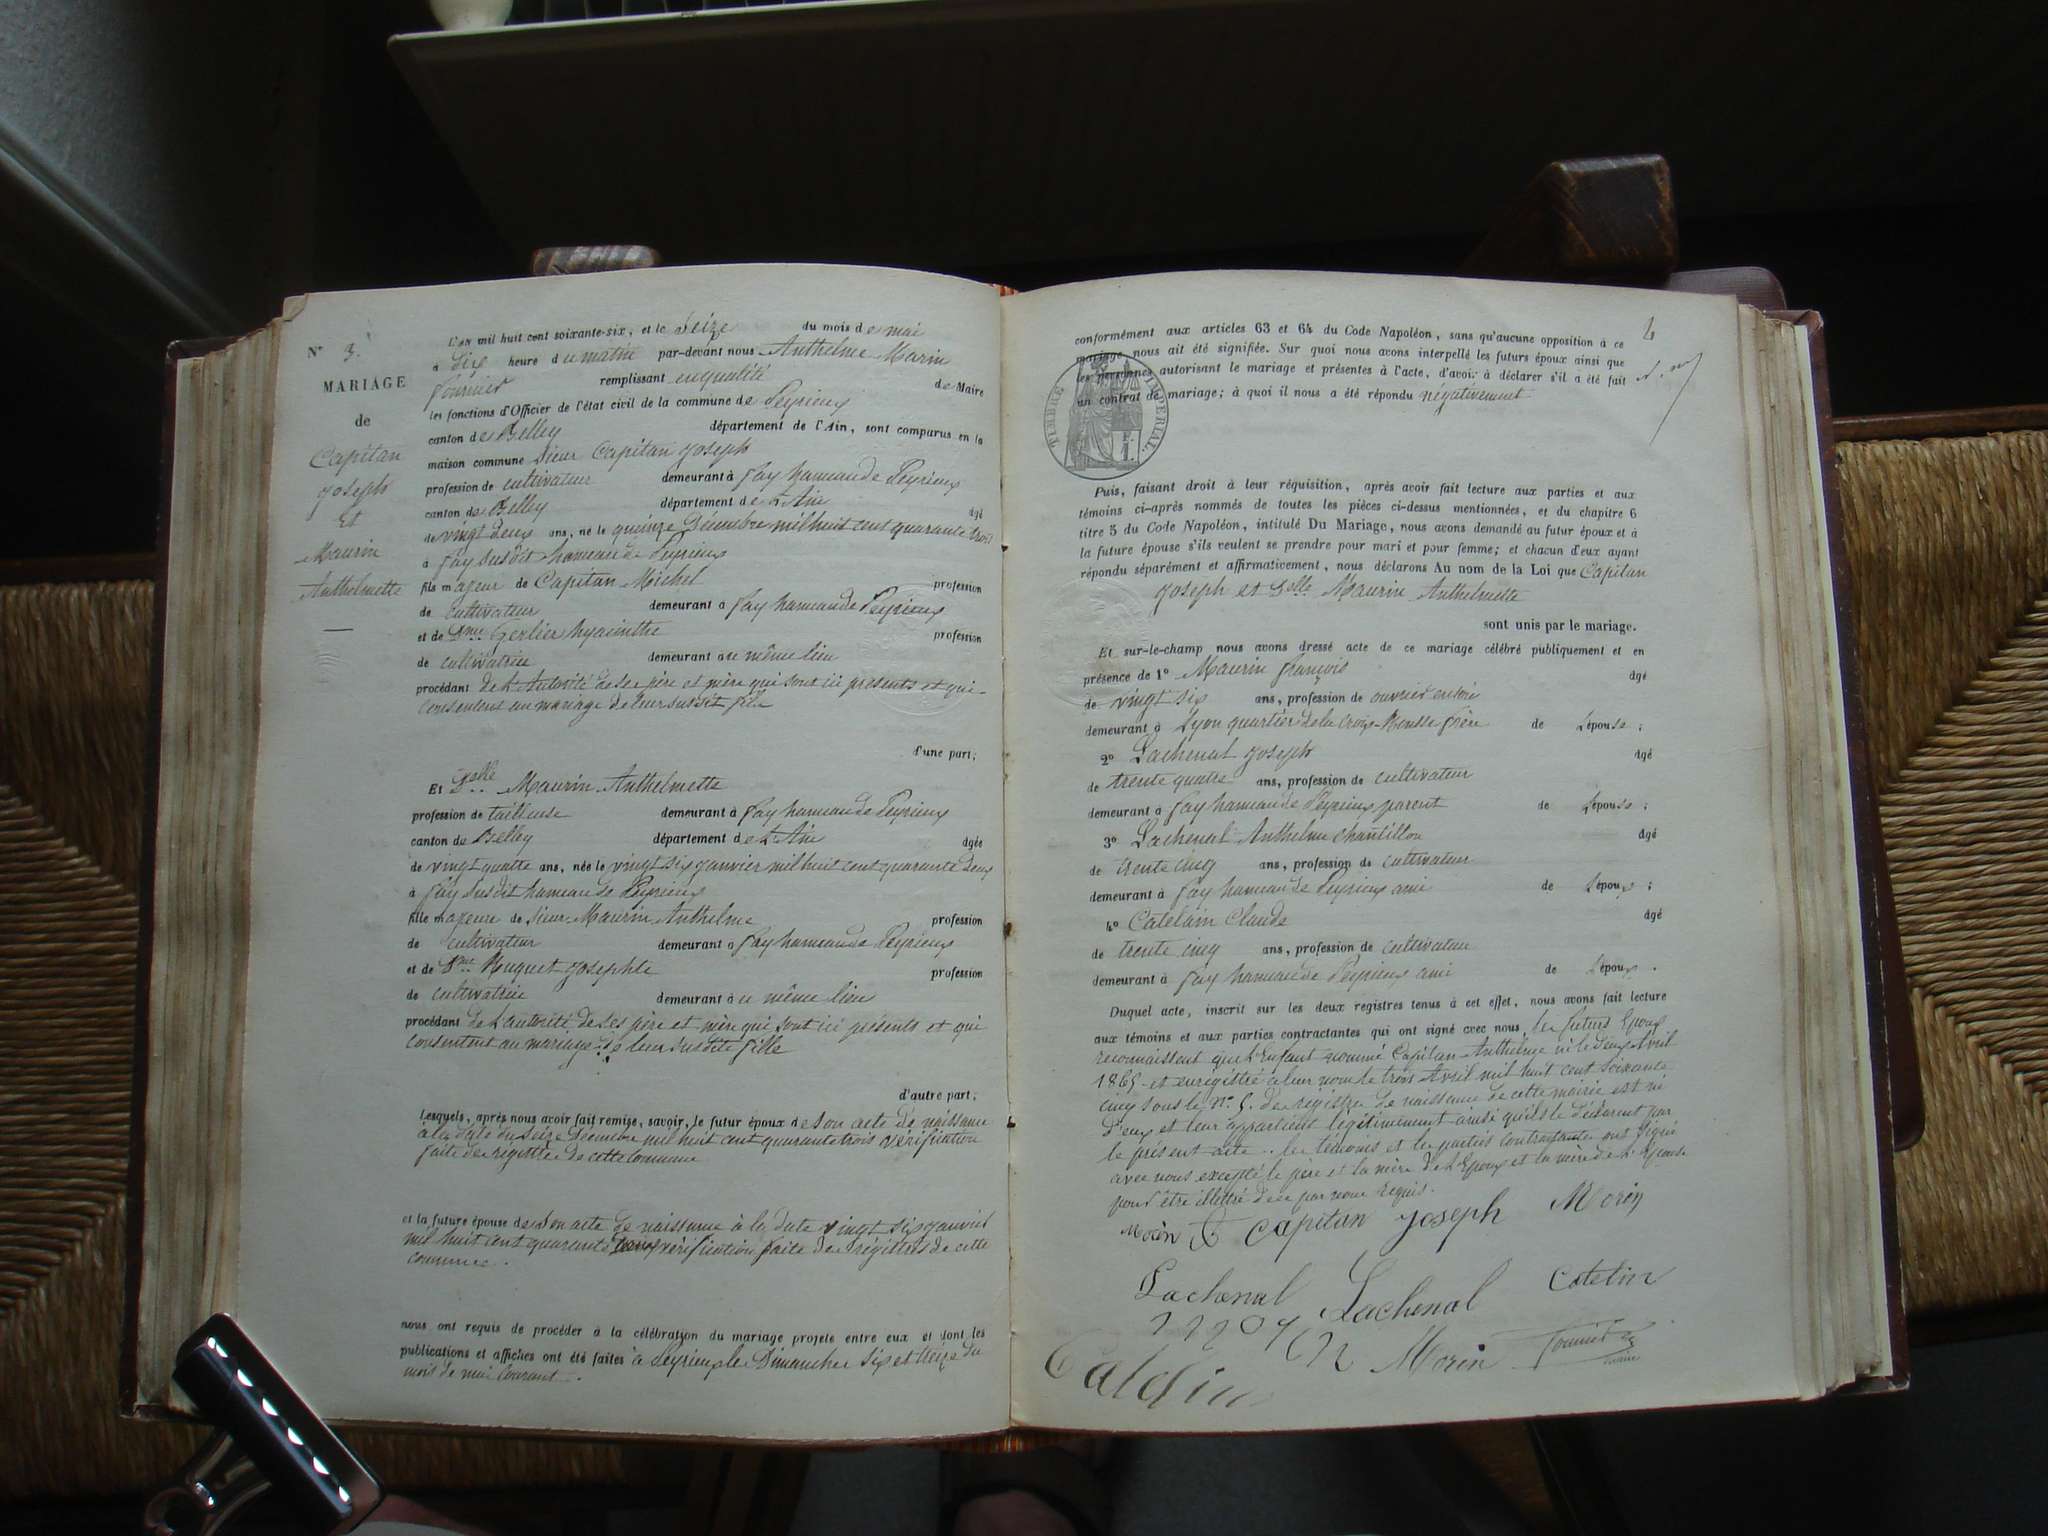 N° 3.
MARIAGE
de
Capitan
Joseph
Et
Maurin
Anthelmette
L'an mil huit cent soixante-six, et le Seize du mois de mai
à dix heure du matin par-devant nous Anthelme Marin
fournier remplissant enqualité de Maire
les fonctions d'Officier de l'état civil de la commune de Peyrieux
canton de Belley département de l'Ain, sont comparus en la
maison commune Sieur Capitan Joseph
profession de cultivateur demeurant à fay hameau de Peyrieux
canton de Belley département de L'Ain âgé
de vingt deux ans, né le quinze Décembre mil huit cent quarante trois
à fay susdit hameau de Peyrieux
fils majeur de Capitan Michel profession
de cultivateur demeurant à fay hameau de Peyrieux
et de Dme Gerlier hyacinthe profession
de cultivatrice demeurant au même lieu
procédant de L'Autorité de Ses père et mère qui sont ici présents et qui
consentent au mariage de leur susdit fils
d'une part;
Et Delle Maurin Anthelmette
profession de tailleuse demeurant à fay hameau de Peyrieux
canton de Belley département de L'Ain âgée
de vingt quatre ans, née le vingt six janvier mil huit cent quarante deux
à fay susdit hameau de Peyrieux
fille majeure de Sieur Maurin Anthelme profession
de cultivateur demeurant à fay hameau de Peyrieux
et de Dme Huguet Josephte profession
de cultivatrice demeurant au même lieu
procédant de L'autorité de Ses père et mère qui sont ici présents et qui
consentent au mariage de leur susdite fille
d'autre part;
Lesquels, après nous avoir fait remise, savoir, le futur époux de son acte de naissance
à la date du seize Décembre mil huit cent quarante trois vérification
faite des registres de cette Commune
et la future épouse de son acte de naissance à la date vingt six janvier
mil huit cent quarante deux vérification faite des régistres de cette
commune.
nous ont requis de procéder à la célébration du mariage projeté entre eux et dont les
publications et affiches ont été faites à Peyrieux les Dimanches Six et treize du
mois de mai Courant.
conformément aux articles 63 et 64 du Code Napoléon, sans qu'aucune opposition à ce
mariage nous ait été signifiée. Sur quoi nous avons interpellé les futurs époux ainsi que
les personnes autorisant le mariage et présentes à l'acte, d'avoir à déclarer s'il a été fait
un contrat de mariage; à quoi il nous a été répondu négativement
TIMBRE IMPERIAL
Puis, faisant droit à leur réquisition, après avoir fait lecture aux parties et aux
témoins ci-après nommés de toutes les pièces ci-dessus mentionnées, et du chapitre 6
titre 5 du Code Napoléon, intitulé Du Mariage, nous avons demandé au futur époux et à
la future épouse s'ils veulent se prendre pour mari et pour femme; et chacun d'eux ayant
répondu séparément et affirmativement, nous déclarons Au nom de la Loi que Capitan
Joseph et Delle Maurin Anthelmette
sont unis par le mariage.
Et sur-le-champ nous avons dressé acte de ce mariage célébré publiquement et en
présence de 1° Maurin françois âgé
de vingt six ans, profession de ouvrier en soie
demeurant à Lyon quartier de la Croix-Rousse frère de L'épouse;
2° Lachenal Joseph âgé
de trente quatre ans, profession de cultivateur
demeurant à fay hameau de Peyrieux parent de L'épouse;
3° Lachenal Anthelme Chantillon âgé
de trente cinq ans, profession de cultivateur
demeurant à fay hameau de Peyrieux ami de L'époux;
4° Catelain Claude âgé
de trente cinq ans, profession de cultivateur
demeurant à fay hameau de Peyrieux ami de L'époux.
Duquel acte, inscrit sur les deux registres tenus à cet effet, nous avons fait lecture
aux témoins et aux parties contractantes qui ont signé avec nous, les futurs Epoux
reconnaissent que L'Enfant nommé Capitan Anthelme né le deux Avril
1865 et enregistré à leur nom le trois Avril mil huit cent soixante
cinq sous le N° 5. des régistres de naissance de cette mairie est né
d'eux et leur appartient légitimement ainsi qu'ils le déclarent par
le présent acte. les témoins et les parties contractantes ont signé
avec nous excepté le père et la mère de L'Epoux et la mère de L'Epouse
pour être illettré de ce par nous requis.
Morin Capitan Joseph Morin
Lachenal Lachenal Catelin
Morin Fournier
maire